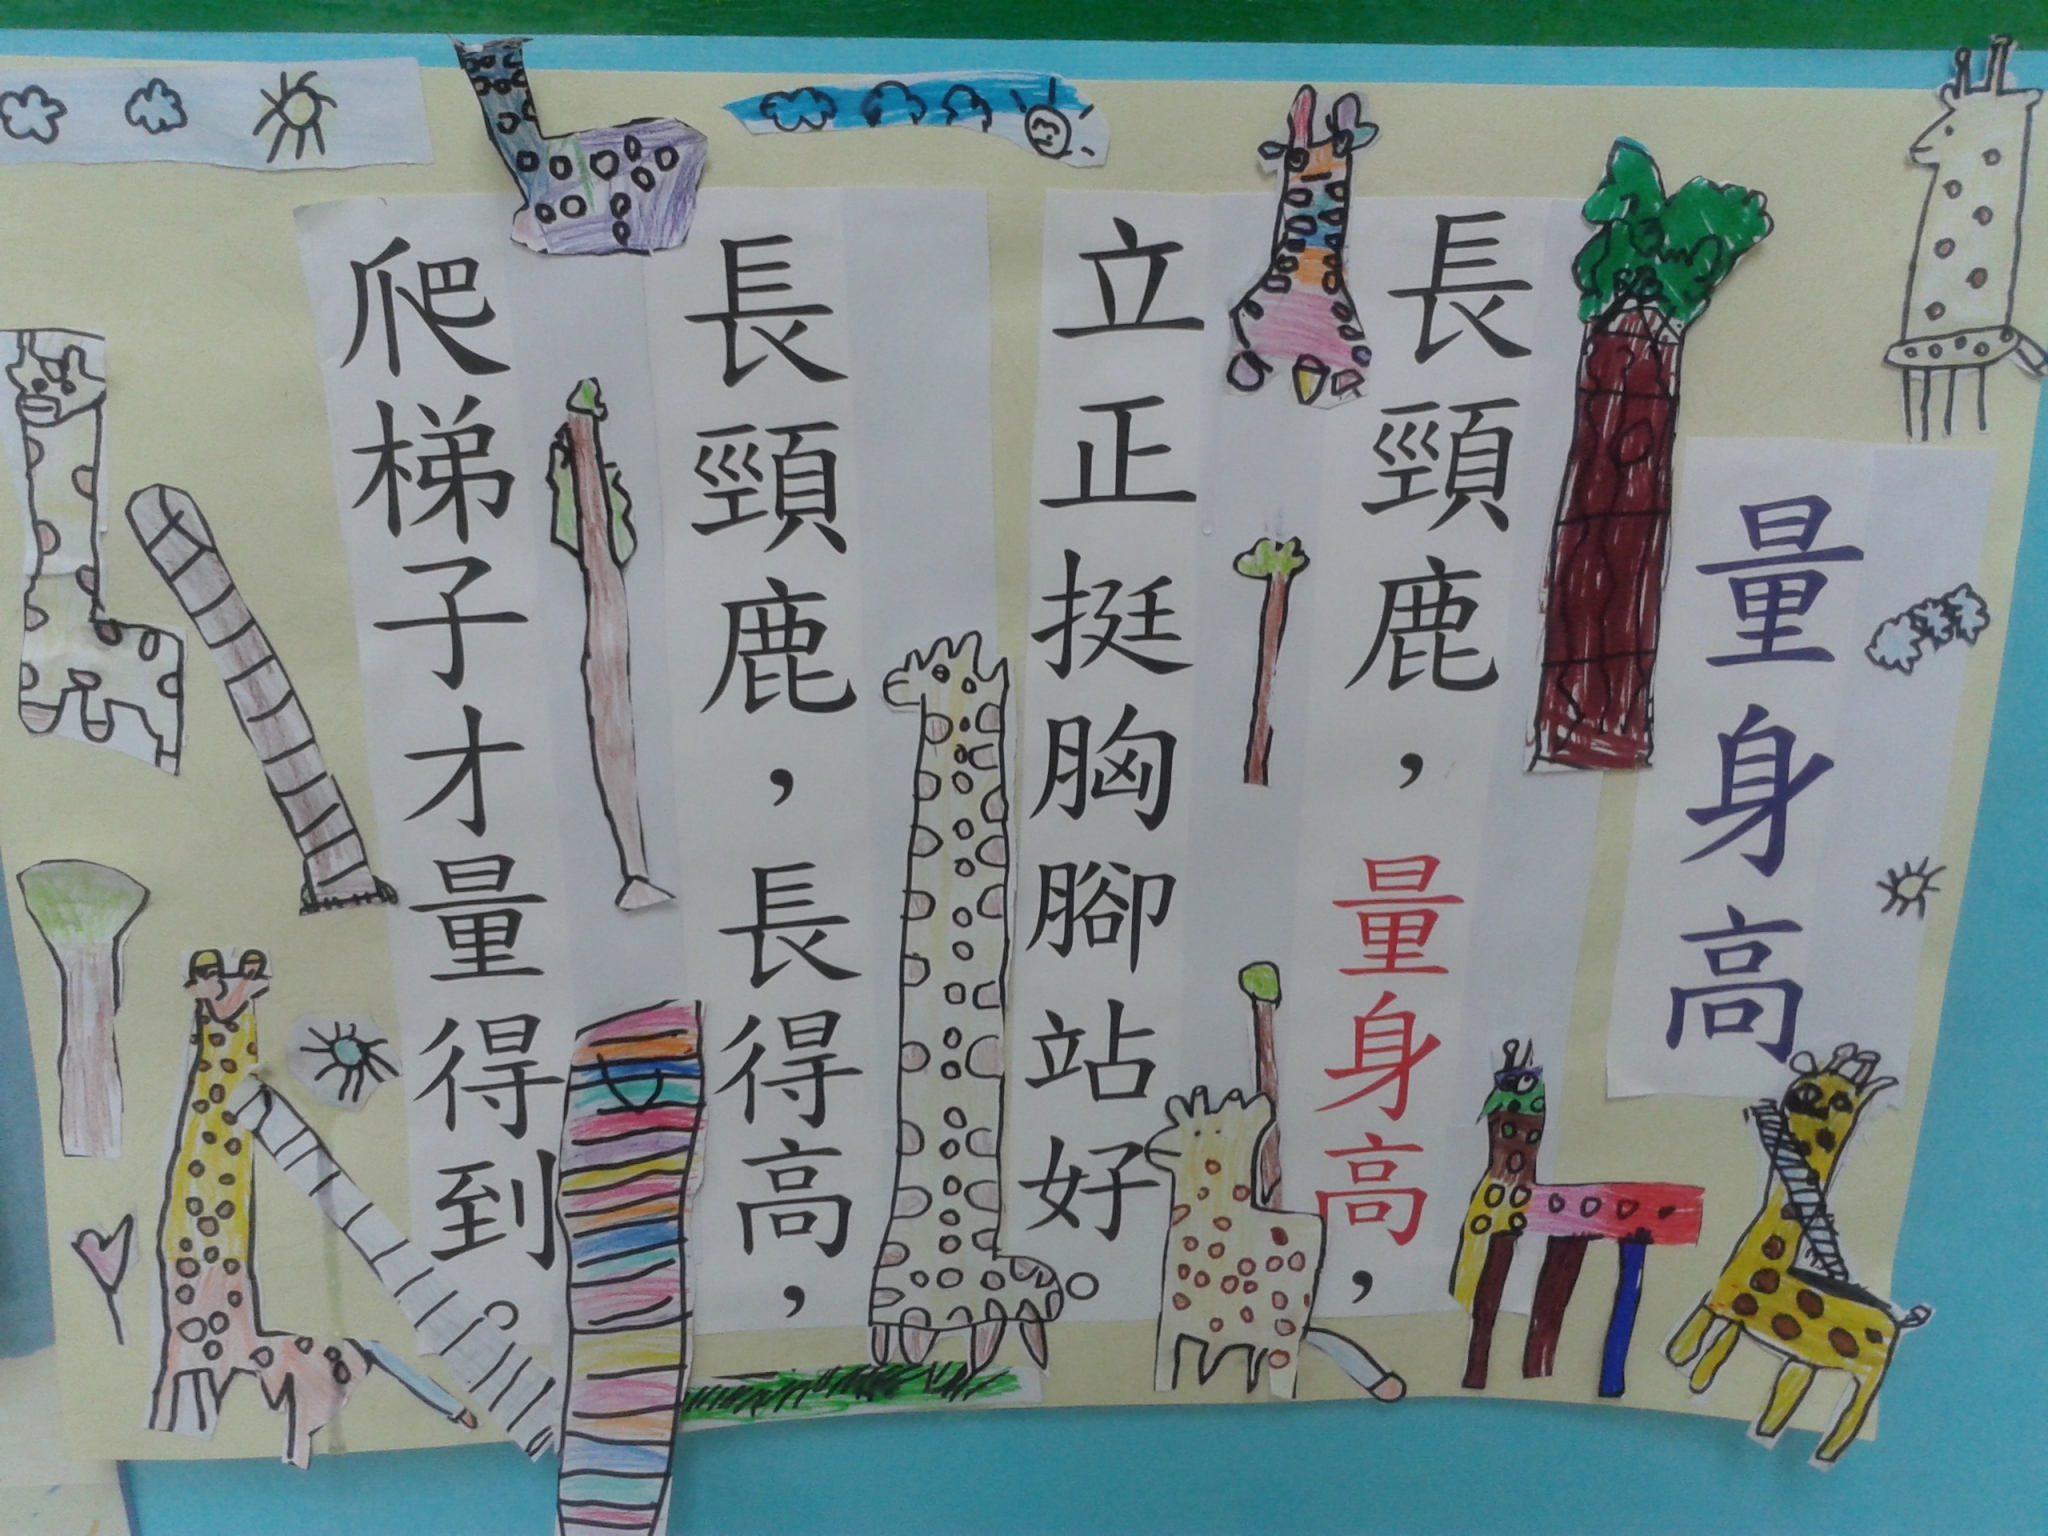 量身高
長頸鹿，量身高，
立正挺胸腳站好。
長頸鹿，長得高，
爬梯子才量得到。